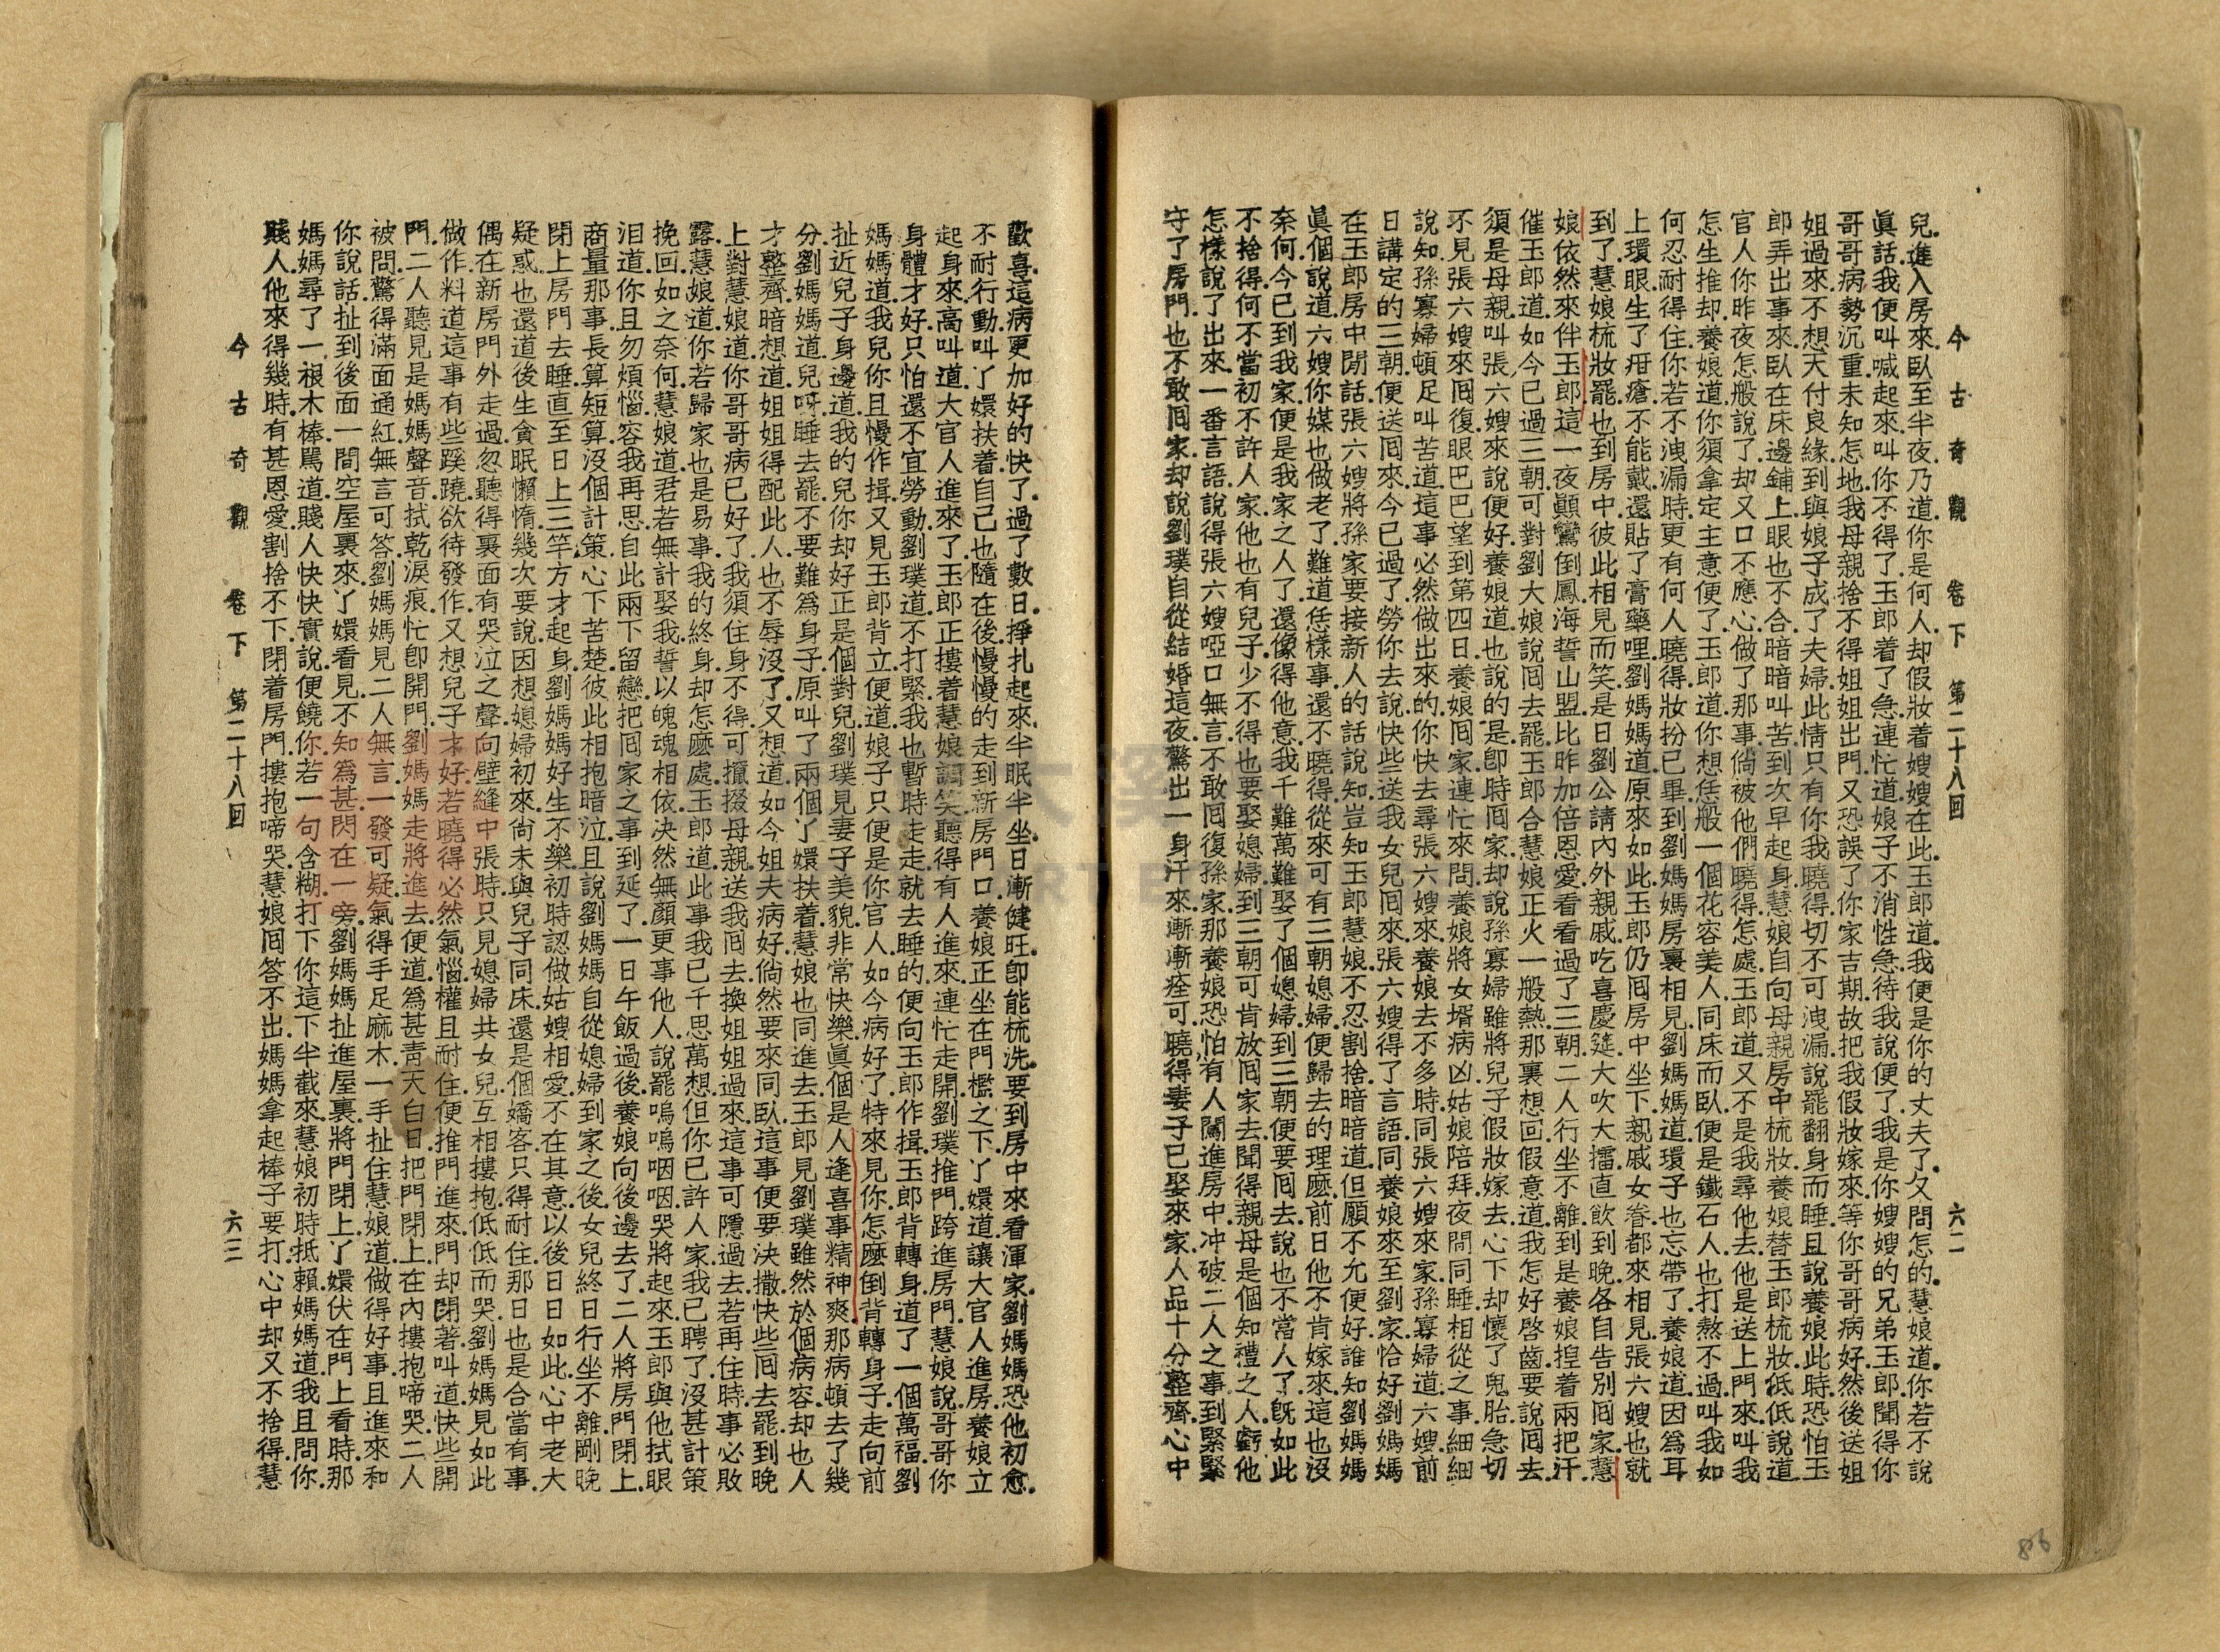 今古奇觀　卷下　第二十八回　六二
兒.進入房來.臥至半夜乃道你是何人.却假妝着嫂嫂在此.玉郎道.我便是你的丈夫了.又問怎的.慧娘道.你若不說
眞話.我便叫喊起來.叫你不得了.玉郎着了急.連忙道.娘子不消性急.待我說便了.我是你嫂嫂的兄弟玉郎.聞得你
哥哥病勢沉重.未知怎地.我母親捨不得姐姐出門.又恐誤了你家吉期.故把我假妝嫁來.等你哥哥病好.然後送姐
姐過來.不想天付良緣.到與娘子成了夫婦.此情只有你我曉得.切不可洩漏.說罷翻身而睡.且說養娘此時恐怕玉
郎弄出事來.臥在床邊鋪上.眼也不合.暗暗叫苦.到次早起身.慧娘自向母親房中梳妝.養娘替玉郎梳妝.低低說道.
官人你昨夜怎般說了.却又口不應心.做了那事.倘被他們曉得.怎處.玉郎道.又不是我尋他去.他是送上門來.叫我
怎生推却.養娘道.你須拿定主意便了.玉郎道.你想恁般一個花容美人.同床而臥.便是鐵石人.也打熬不過.叫我如
何忍耐得住.你若不洩漏時.更有何人曉得.妝扮已畢.到劉媽媽房裏相見.劉媽媽道.環子也忘帶了.養娘道.因爲耳
上環眼生了疳瘡.不能戴.還貼了膏藥哩.劉媽媽道.原來如此.玉郎仍囘房中坐下.親戚女眷都來相見.張六嫂也就
到了.慧娘梳妝罷.也到房中.彼此相見而笑.是日劉公請內外親戚.吃喜慶筵.大吹大擂.直飲到晚.各自告別囘家.慧
娘依然來伴玉郎.這一夜顚鸞倒鳳.海誓山盟.比昨加倍恩愛.看看過了三朝.二人行坐不離.到是養娘捏着兩把汗.
催玉郎道.如今已過三朝.可對劉大娘說.囘去罷.玉郎合慧娘正火一般熱.那裏想回.假意道.我怎好啓齒.要說囘去.
須是母親叫張六嫂來說便好.養娘道.也說的是.即時囘家.却說孫寡婦雖將兒子假妝嫁去.心下却懷了鬼胎.急切
不見張六嫂來囘復.眼巴巴望到第四日.養娘囘家.連忙來問.養娘將女壻病凶.姑娘陪拜.夜間同睡相從之事.細細
說知.孫寡婦頓足叫苦道.這事必然做出來的.你快去尋張六嫂來.養娘去不多時.同張六嫂來家.孫寡婦道.六嫂.前
日講定的三朝便送囘來.今已過了.勞你去說.快些送我女兒囘來.張六嫂得了言語.同養娘來至劉家.恰好劉媽媽
在玉郎房中閒話.張六嫂將孫家要接新人的話說知.豈知玉郎慧娘.不忍割捨.暗暗道.但願不允便好.誰知劉媽媽
眞個說道.六嫂.你媒也做老了.難道恁樣事.還不曉得.從來可有三朝媳婦便歸去的理麽.前日他不肯嫁來.這也沒
奈何.今已到我家.便是我家之人了.還像得他意.我千難萬難娶了個媳婦.到三朝便要囘去.說也不當人了.旣如此
不捨得.何不當初不許人家.他也有兒子.少不得也要娶媳婦.到三朝可肯放囘家去.聞得親母是個知禮之人.虧他
怎樣說了出來.一番言語.說得張六嫂啞口無言.不敢囘復孫家.那養娘恐怕有人闖進房中.冲破二人之事.到緊緊
守了房門.也不敢囘家.却說劉璞自從結婚這夜.驚出一身汗來.漸漸痊可.曉得妻子已娶來家.人品十分整齊.心中
歡喜.這病更加好的快了.過了數日.掙扎起來.半眠半坐.日漸健旺.卽能梳洗.要到房中來看渾家.劉媽媽恐他初愈.
不耐行動.叫丫嬛扶着.自己也隨在後.慢慢的走到新房門口.養娘正坐在門檻之下.丫嬛道.讓大官人進房.養娘立
起身來.高叫道.大官人進來了.玉郎正摟着慧娘調笑.聽得有人進來.連忙走開.劉璞推門.跨進房門.慧娘說.哥哥你
身體才好.只怕還不宜勞動.劉璞道.不打緊.我也暫時走走就去睡的.便向玉郎作揖.玉郎背轉身.道了一個萬福.劉
媽媽道.我兒.你且慢作揖.又見玉郎背立.便道.娘子.只便是你官人.如今病好了.特來見你.怎麽倒背轉身子.走向前
扯近兒子身邊道.我的兒.你却好正是個對兒.劉璞見妻子美貌非常.快樂.眞個是人逢喜事精神爽.那病頓去了幾
分.劉媽媽道.兒呀.睡去罷.不要難爲身子.原叫了兩個丫嬛扶着.慧娘也同進去.玉郎見劉璞雖然於個病容.却也人
才整齊.暗想道.姐姐得配此人.也不辱沒了.又想道.如今姐夫病好.倘然要來同臥.這事便要決撒.快些囘去罷.到晚
上對慧娘道.你哥哥病已好了.我須住身不得.可攛掇母親送我囘去.換姐姐過來.這事可隱過去.若再住時.事必敗
露.慧娘道.你若歸家也是易事.我的終身.却怎麽處.玉郎道.此事我已千思萬想.但你已許人家.我已聘了.沒甚計策
挽回.如之奈何.慧娘道.君若無計娶我.誓以魄魂相依.決然無顏更事他人.說罷.嗚嗚咽咽.哭將起來.玉郎與他拭眼
泪道.你且勿煩惱.容我再思.自此兩下留戀.把囘家之事到延了.一日午飯過後.養娘向後邊去了.二人將房門閉上.
商量那事.長算短算.沒個計策.心下苦楚.彼此相抱暗泣.且說劉媽媽自從媳婦到家之後.女兒終日行坐不離.剛晚
閉上房門去睡.直至日上三竿.方才起身.劉媽媽好生不樂.初時認做姑嫂相愛.不在其意.以後日日如此.心中老大
疑惑.也還道後生貪眠懶惰.幾次要說.因想媳婦初來.尙未與兒子同床.還是個嬌客.只得耐住.那日也是合當有事.
偶在新房門外走過.忽聽得裏面有哭泣之聲.向壁縫中張時.只見媳婦共女兒互相摟抱.低低而哭.劉媽媽見如此
做作.料道這事有些蹊蹺.欲待發作.又想兒子才好.若曉得必然氣惱.權且耐住.便推門進來.門却閉著.叫道.快些開
門.二人聽見是媽媽聲音.拭乾淚痕.忙卽開門.劉媽媽走將進去.便道.爲甚靑天白日.把門閉上.在內摟抱啼哭.二人
被問.驚得滿面通紅.無言可答.劉媽媽見二人無言.一發可疑.氣得手足麻木.一手扯住慧娘道.做得好事.且進來和
你說話.扯到後面一間空屋裏來.丫嬛看見.不知爲甚.閃在一旁.劉媽媽扯進屋裏.將門閉上.丫嬛伏在門上看時.那
媽媽尋了一根木棒.罵道.賤人.快快實說.便饒你.若一句含糊.打下你這下半截來.慧娘初時抵賴.媽媽道.我且問你.
賤人.他來得幾時.有甚恩愛.割捨不下.閉着房門.摟抱啼哭.慧娘囘答不出.媽媽拿起棒子要打.心中却又不捨得.慧
今古奇觀　卷下　第二十八回　六三
86